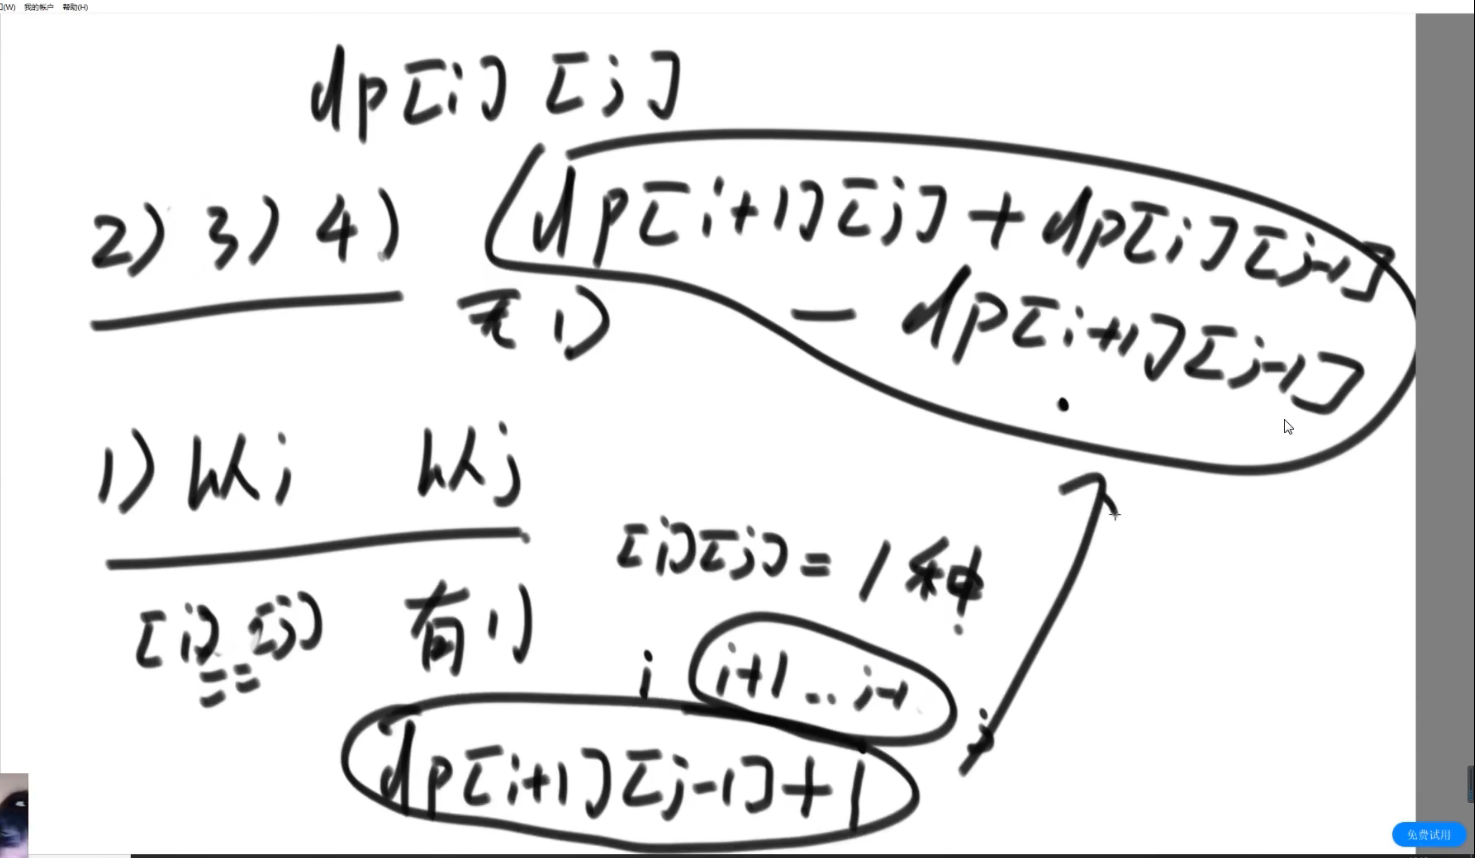 (W) 我的帐户 帮助(H)
dp[i][j]
2) 3) 4)
dp[i+1][j] + dp[i][j-1]
- dp[i+1][j-1]
无 1)
1) 以i 以j
[i][j] = 1种
[i] == [j] 有 1)
i i+1 .. j-1 j
dp[i+1][j-1] + 1
免费试用